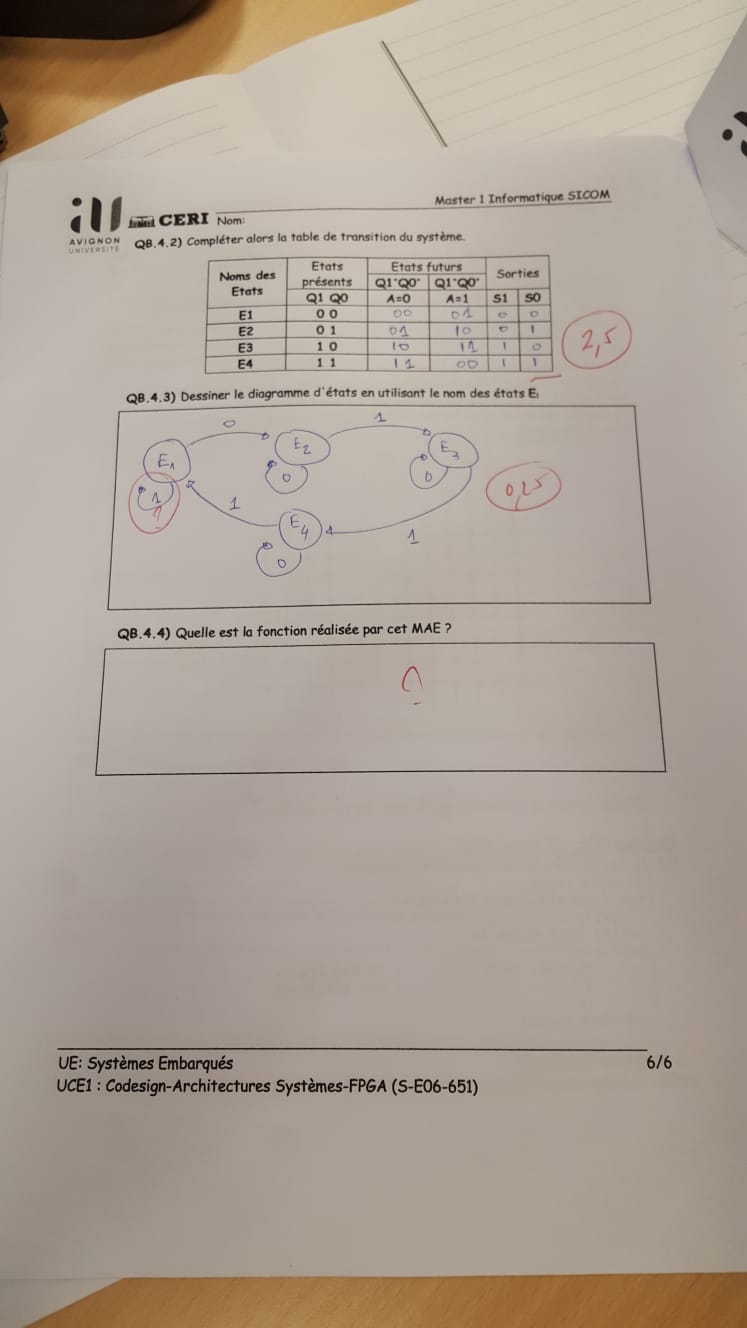 Master 1 Informatique SICOM
AVIGNON
UNIVERSITÉ
CERI Nom:
QB.4.2) Compléter alors la table de transition du système.
Noms des Etats | Etats présents | Etats futurs | Sorties
Q1⁺Q0⁺ | Q1⁺Q0⁺
Q1 Q0 | A=0 | A=1 | S1 | S0
E1 | 0 0 | 00 | 01 | 0 | 0
E2 | 0 1 | 01 | 10 | 0 | 1
E3 | 1 0 | 10 | 11 | 1 | 0
E4 | 1 1 | 11 | 00 | 1 | 1
2,5
QB.4.3) Dessiner le diagramme d'états en utilisant le nom des états Ei
0
1
E1
E2
E3
1
0
0
0,25
1
E4
1
0
QB.4.4) Quelle est la fonction réalisée par cet MAE ?
UE: Systèmes Embarqués
6/6
UCE1 : Codesign-Architectures Systèmes-FPGA (S-E06-651)